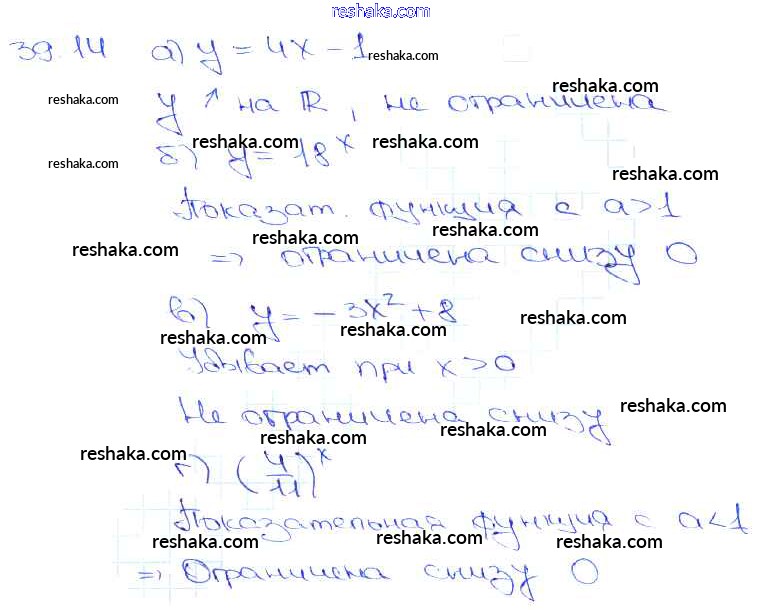 reshaka.com
39.14 а) y = 4x - 1 reshaka.com
reshaka.com reshaka.com
y ↑ на R, не ограничена
reshaka.com reshaka.com reshaka.com
б) y = 18^x
reshaka.com
Показат. функция с a>1
reshaka.com reshaka.com reshaka.com
=> ограничена снизу 0
в) y = -3x² + 8
reshaka.com reshaka.com reshaka.com
Убывает при x > 0
Не ограничена снизу
reshaka.com reshaka.com reshaka.com reshaka.com
г) (4/11)^x
reshaka.com
Показательная функция с a<1
reshaka.com reshaka.com reshaka.com
=> Ограничена снизу 0